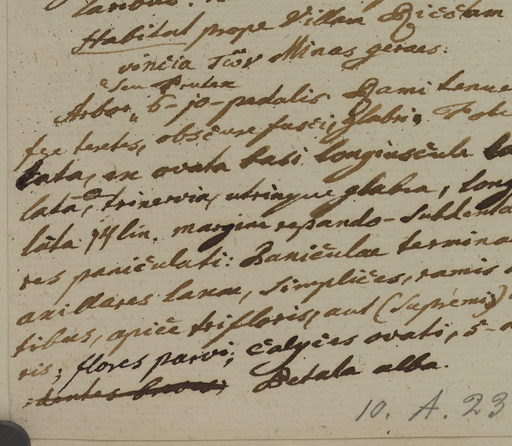 Habitat prope Villam Dictam
vincia Tcör Minas geraes.
Seu Frutex
Arbor, 6-10-pedalis. Rami tenue
tex teretes, obscure fusci, glabri. Fol
lata, ex ovata basi longiuscule la
lata, trinervia, utrinque glabra, long
lata 14 lin. margine repando-subdenta
res paniculati: Paniculae termina
axillares laxae, simplices, ramis
tibus, apice trifloris, aut (supremis)
ris; flores parvi; calyces ovati, 5-
dentes Petala alba.
10. A. 23